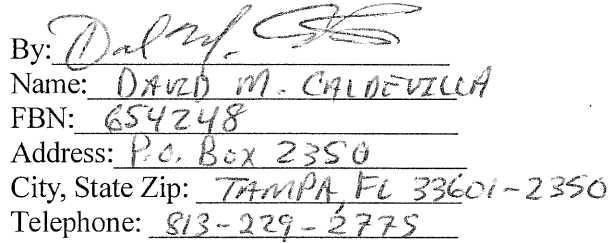 By:
Name: DAVID M. CALDEVILLA
FBN: 654248
Address: P.O. BOX 2350
City, State Zip: TAMPA, FL 33601-2350
Telephone: 813-229-2775